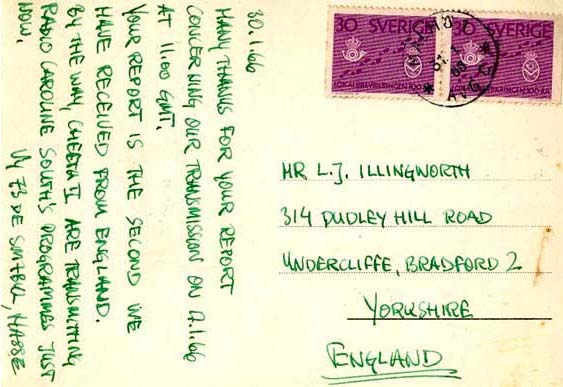 30.1.66
MANY THANKS FOR YOUR REPORT
CONCERNING OUR TRANSMISSION ON 17.1.66
AT 11.00 GMT.
YOUR REPORT IS THE SECOND WE
HAVE RECEIVED FROM ENGLAND.
BY THE WAY, CHEETA II ARE TRANSMITTING
RADIO CAROLINE SOUTH'S PROGRAMMES JUST
NOW.
VY 73 DE HASSE
30 SVERIGE
LOKALBREVBÄRINGEN 100 ÅR
30 SVERIGE
LOKALBREVBÄRINGEN 100 ÅR
MR L.J. ILLINGWORTH
314 DUDLEY HILL ROAD
UNDERCLIFFE, BRADFORD 2
YORKSHIRE
ENGLAND